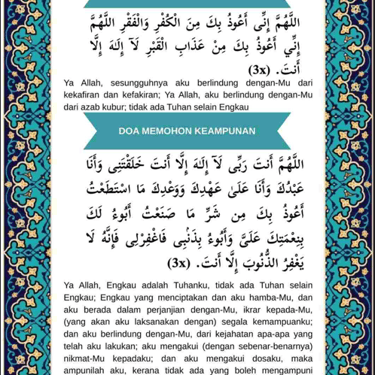 اللَّهُمَّ إِنِّى أَعُوذُ بِكَ مِنَ الْكُفْرِ وَالْفَقْرِ اللَّهُمَّ
إِنِّي أَعُوذُ بِكَ مِنْ عَذَابِ الْقَبْرِ لَآ إِلَـٰهَ إِلَّا
أَنتَ. (3x)
Ya Allah, sesungguhnya aku berlindung dengan-Mu dari
kekafiran dan kefakiran; Ya Allah, aku berlindung dengan-Mu
dari azab kubur; tidak ada Tuhan selain Engkau
DOA MEMOHON KEAMPUNAN
اللَّهُمَّ أَنتَ رَبِّى لَآ إِلَـٰهَ إِلَّا أَنتَ خَلَقْتَنِى وَأَنَا
عَبْدُكَ وَأَنَا عَلَىٰ عَهْدِكَ وَوَعْدِكَ مَا اسْتَطَعْتُ
أَعُوذُ بِكَ مِن شَرِّ مَا صَنَعْتُ أَبُوءُ لَكَ
بِنِعْمَتِكَ عَلَىَّ وَأَبُوءُ بِذَنْبِى فَاغْفِرْلِى فَإِنَّهُ لَا
يَغْفِرُ الذُّنُوبَ إِلَّا أَنتَ. (3x)
Ya Allah, Engkau adalah Tuhanku, tidak ada Tuhan selain
Engkau; Engkau yang menciptakan dan aku hamba-Mu, dan
aku berada dalam perjanjian dengan-Mu, ikrar kepada-Mu,
(yang akan aku laksanakan dengan) segala kemampuanku;
dan aku berlindung dengan-Mu, dari kejahatan apa-apa yang
telah aku lakukan; aku mengakui (dengan sebenar-benarnya)
nikmat-Mu kepadaku; dan aku mengakui dosaku, maka
ampunilah aku, kerana tidak ada yang boleh mengampuni